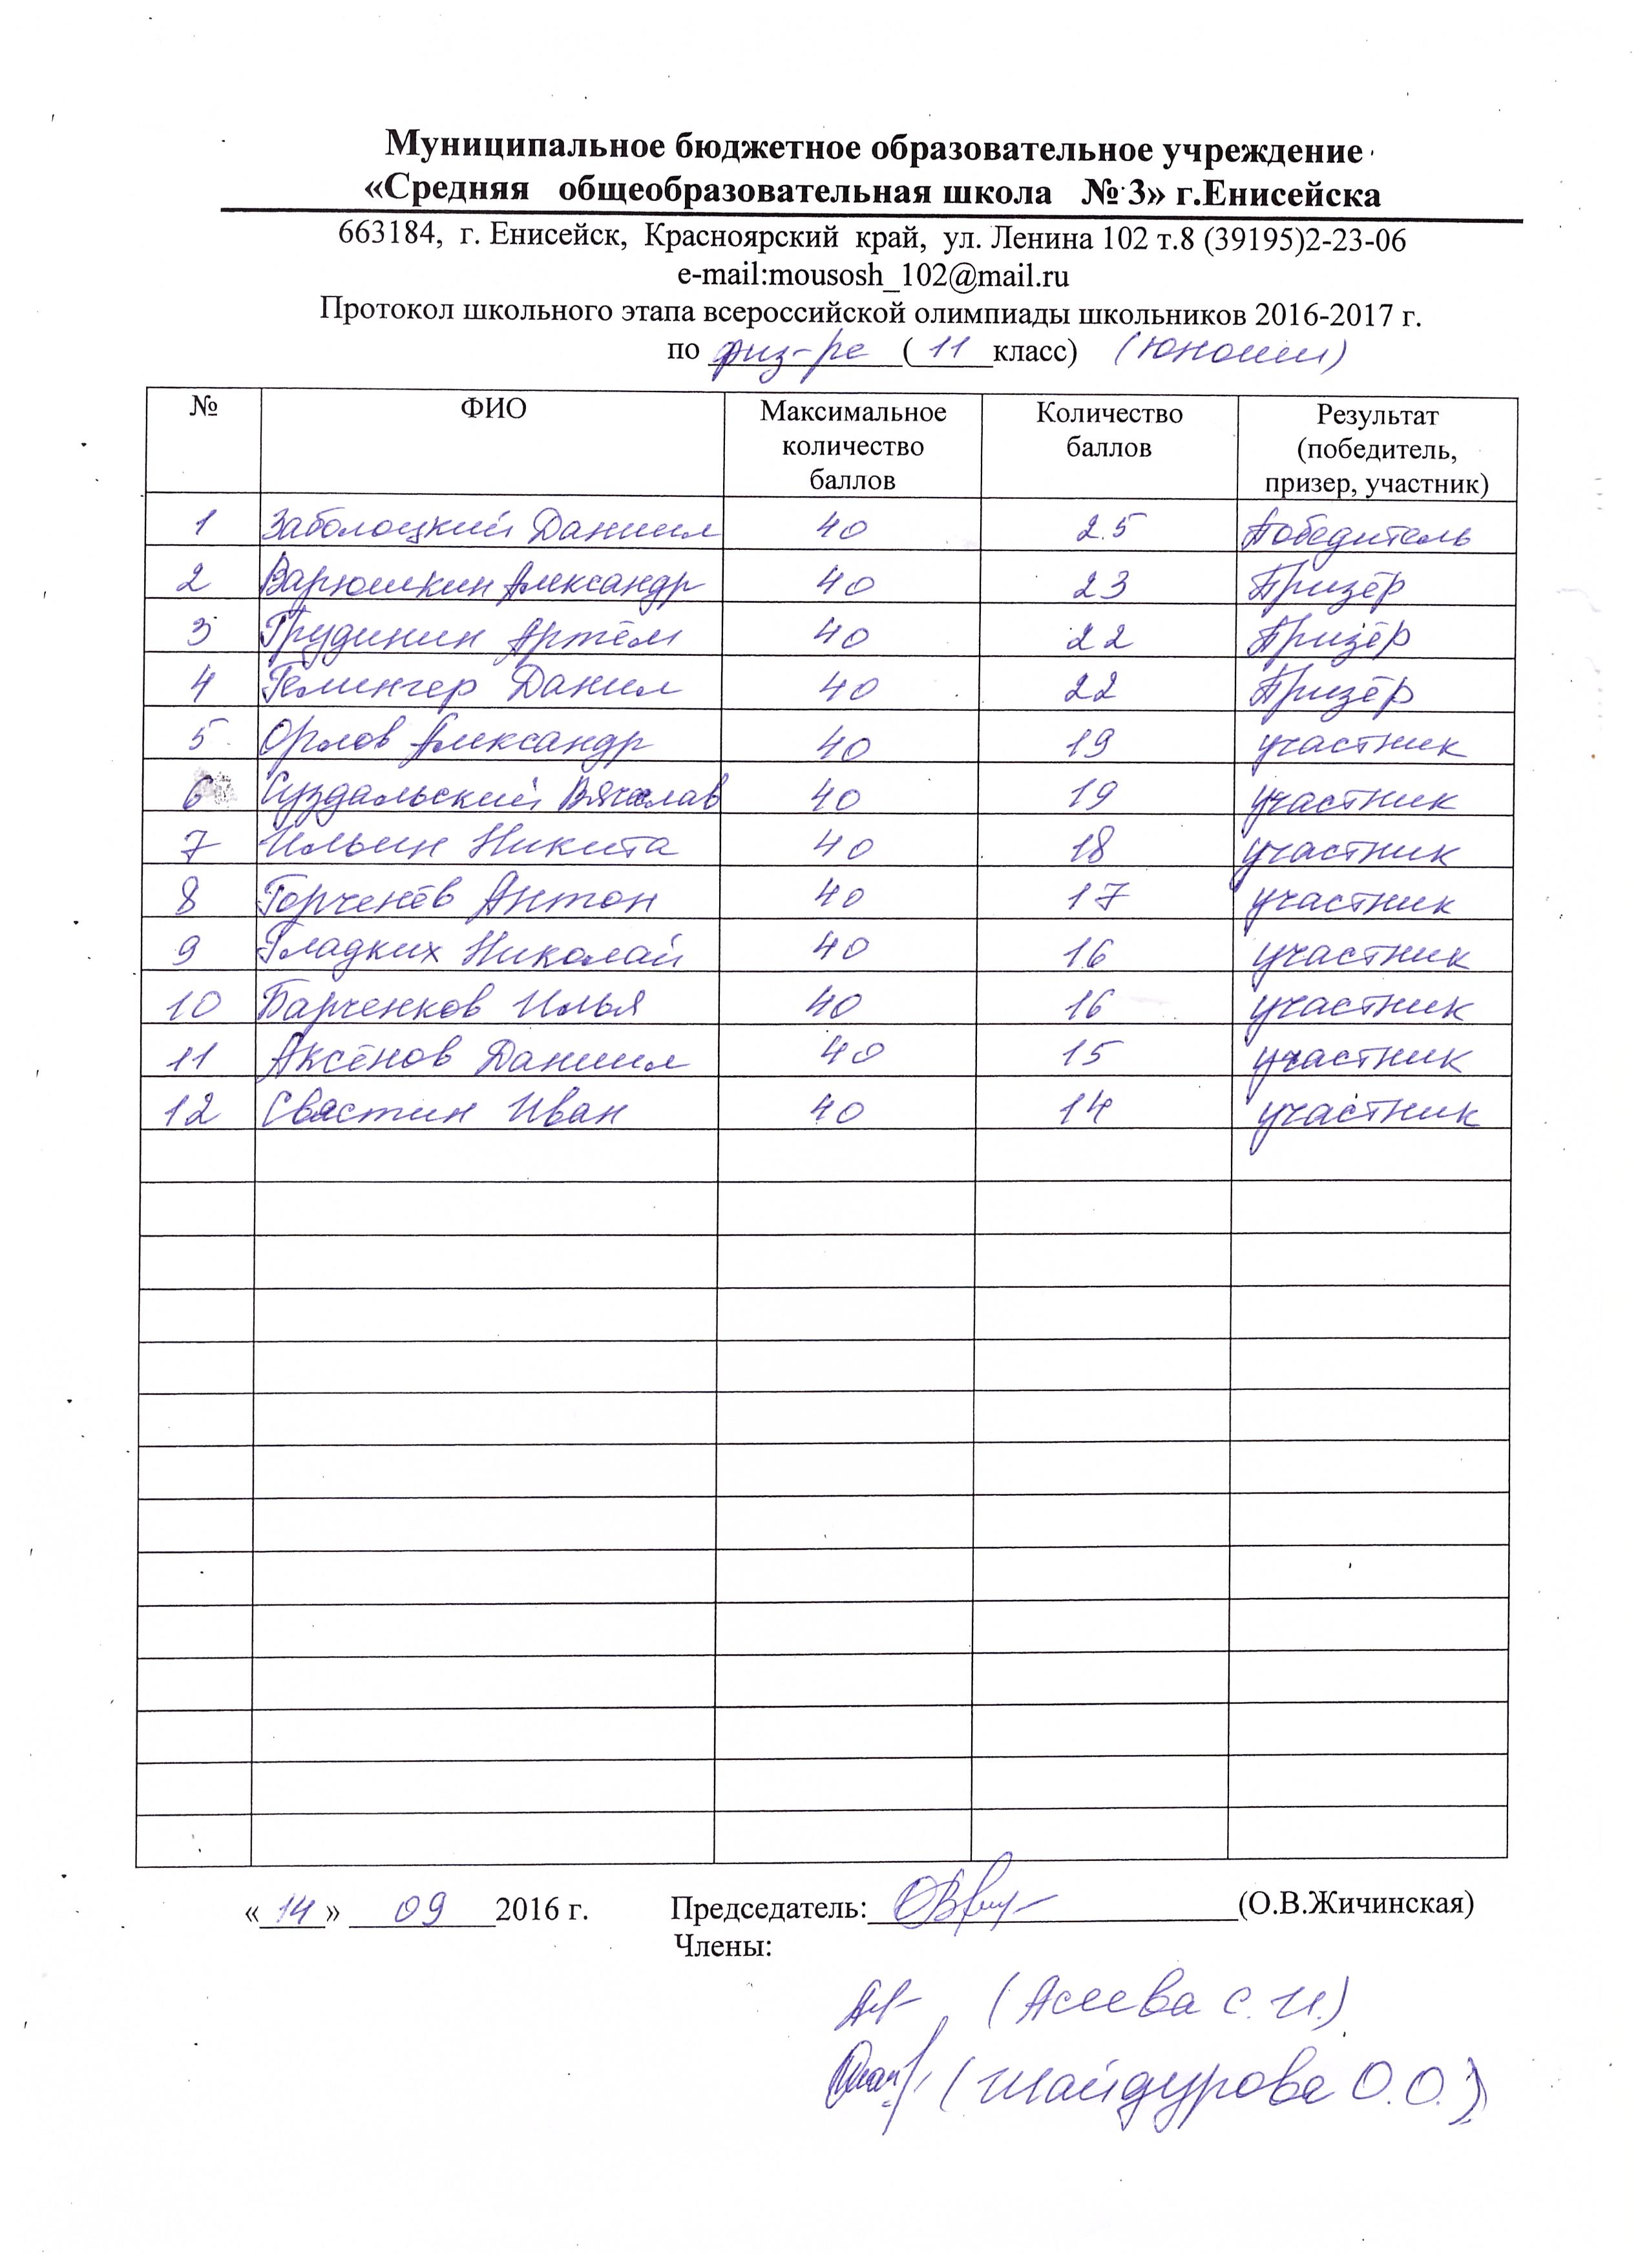 Муниципальное бюджетное образовательное учреждение
«Средняя общеобразовательная школа № 3» г.Енисейска
663184, г. Енисейск, Красноярский край, ул. Ленина 102 т.8 (39195)2-23-06
e-mail:mousosh_102@mail.ru
Протокол школьного этапа всероссийской олимпиады школьников 2016-2017 г.
по физ-ре (11 класс) (юноши)
№ ФИО Максимальное количество баллов Количество баллов Результат (победитель, призер, участник)
1 Заболоцкий Даниил 40 25 Победитель
2 Варюшкин Александр 40 23 Призёр
3 Грудинин Артём 40 22 Призёр
4 Гемингер Данил 40 22 Призёр
5 Орлов Александр 40 19 участник
6 Суздальский Вячеслав 40 19 участник
7 Ильин Никита 40 18 участник
8 Горченёв Антон 40 17 участник
9 Гладких Николай 40 16 участник
10 Барченков Илья 40 16 участник
11 Аксёнов Даниил 40 15 участник
12 Свастин Иван 40 14 участник
«14» 09 2016 г. Председатель: (О.В.Жичинская)
Члены:
(Асеева С.И.)
(Шайдурова О.О.)